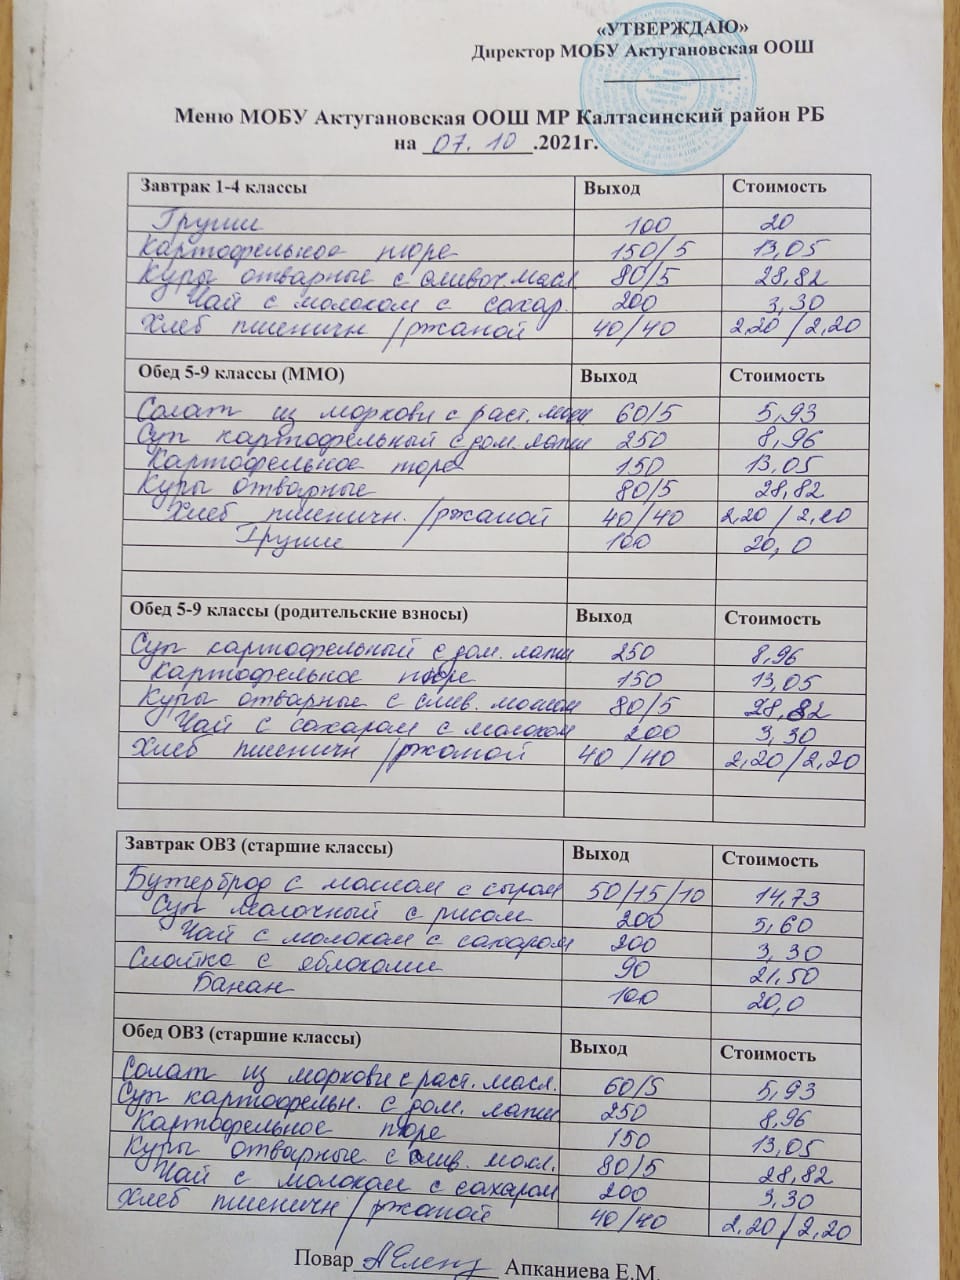 «УТВЕРЖДАЮ»
Директор МОБУ Актугановская ООШ
Меню МОБУ Актугановская ООШ МР Калтасинский район РБ
на 07.10.2021г.
Завтрак 1-4 классы Выход Стоимость
Груши 100 20
Картофельное пюре 150/5 13,05
Куры отварные с сливоч. масл 80/5 28,82
Чай с молоком с сахар. 200 3,30
Хлеб пшеничн /ржаной 40/40 2,20/2,20
Обед 5-9 классы (ММО) Выход Стоимость
Салат из моркови с раст. масл 60/5 5,93
Суп картофельный с дом. лапш 250 8,96
Картофельное пюре 150 13,05
Куры отварные 80/5 28,82
Хлеб пшеничн. /ржаной 40/40 2,20/2,20
Груши 100 20,0
Обед 5-9 классы (родительские взносы) Выход Стоимость
Суп картофельный с дом. лапш 250 8,96
Картофельное пюре 150 13,05
Куры отварные с слив. маслом 80/5 28,82
Чай с сахаром с молоком 200 3,30
Хлеб пшеничн /ржаной 40/40 2,20/2,20
Завтрак ОВЗ (старшие классы) Выход Стоимость
Бутерброд с маслом с сыром 50/15/10 14,73
Суп молочный с рисом 200 5,60
Чай с молоком с сахаром 200 3,30
Слойка с яблоками 90 21,50
Банан 100 20,0
Обед ОВЗ (старшие классы) Выход Стоимость
Салат из моркови с раст. масл. 60/5 5,93
Суп картофельн. с дом. лапш 250 8,96
Картофельное пюре 150 13,05
Куры отварные с слив. масл. 80/5 28,82
Чай с молоком с сахаром 200 3,30
Хлеб пшеничн /ржаной 40/40 2,20/2,20
Повар Апканиева Е.М.